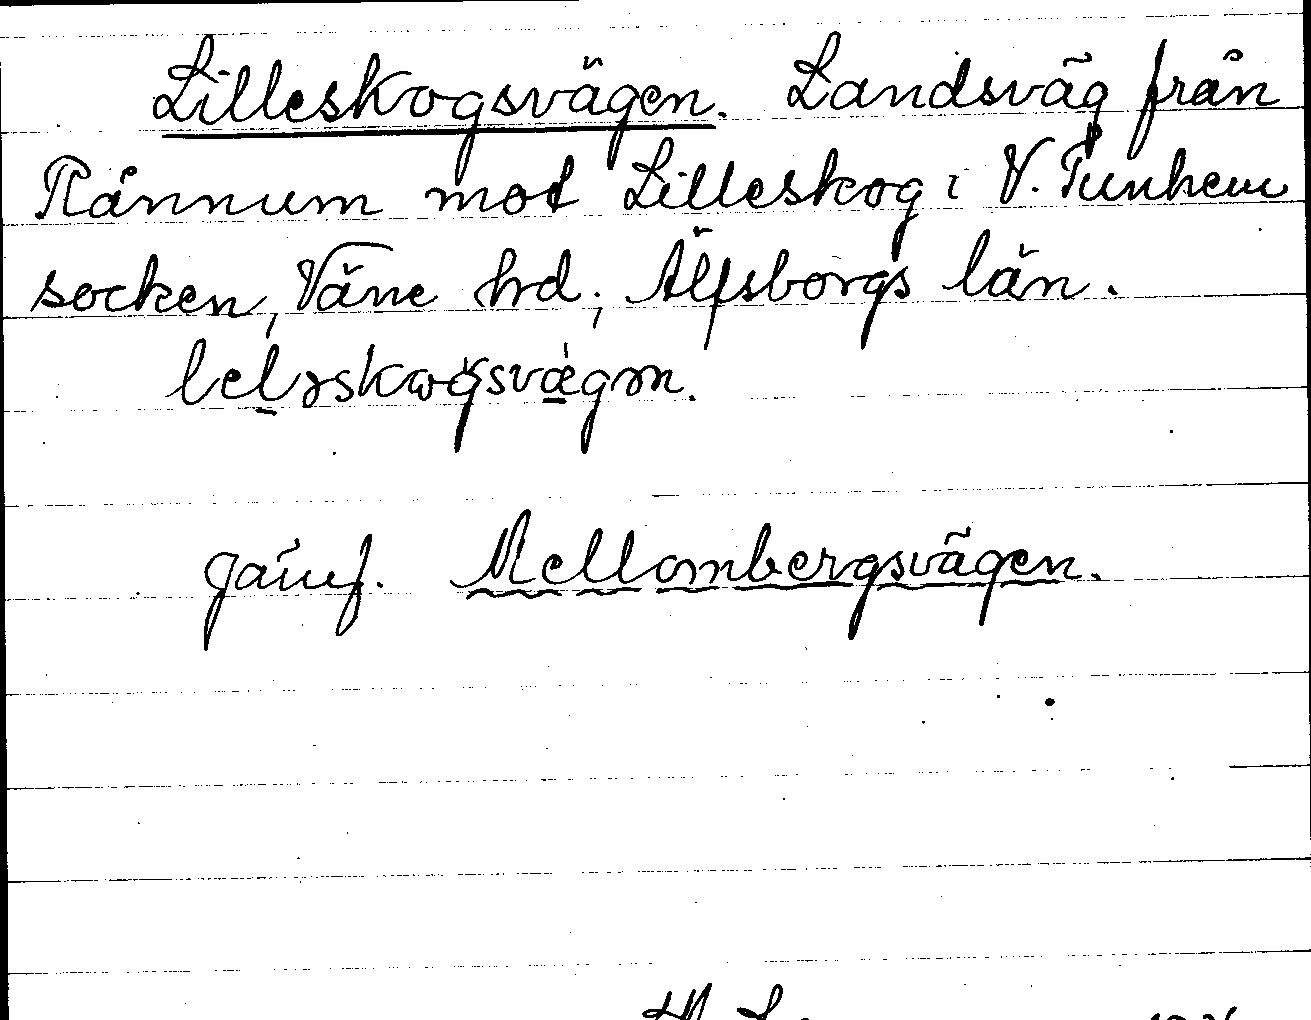 Lilleskogsvägen. Landsväg från
Rånnum mot Lilleskog i V. Tunhem
socken, Väne hd; Älfsborgs län.
jämf. Mellombergsvägen.